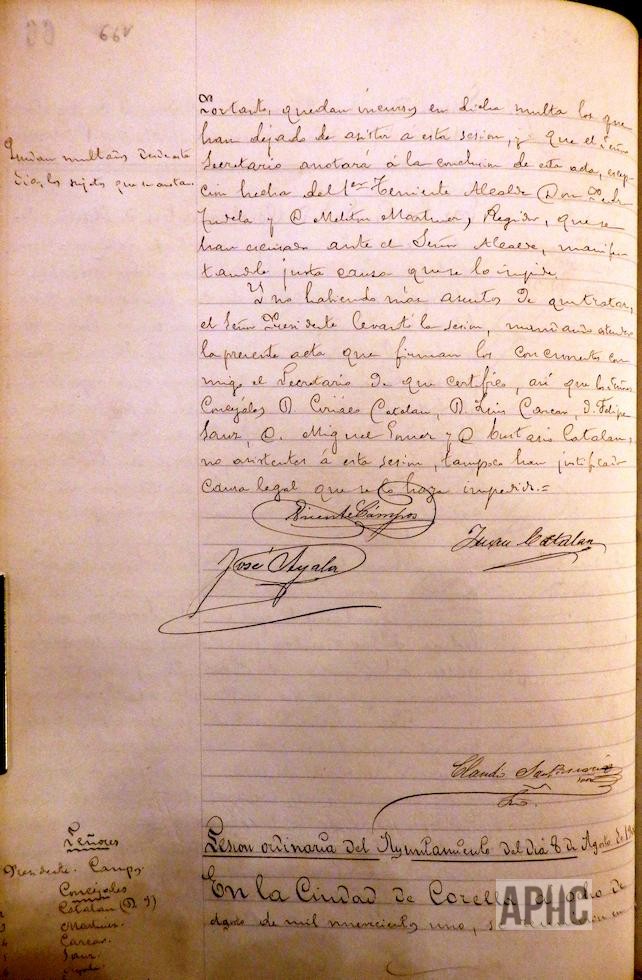 66v
Por tanto, quedan incursos en dicha multa los que
han dejado de asistir a esta sesion, y que el Señor
Secretario anotará á la conclusion de esta acta, escep-
cion hecha del 1er Teniente Alcalde Don Pedro
Tudela y D Meliton Martinez, Regidor, que se
han escusado ante el Señor Alcalde, manifes
tandole justa causa que se lo impide.
Y no habiendo más asuntos de que tratar,
el Señor Presidente levantó la sesion, mandando estender
la presente acta que firman los concurrentes con
migo el Secretario de que certifico, asi que los Señores
Concejales D. Ciriaco Catalan, D. Luis Carcar, D. Felipe
Sanz, D. Miguel Gomez y D Eustasio Catalan,
no asistentes á esta sesion, tampoco han justificado
causa legal que se lo haya impedido.=
Quedan multados
dias, los sujetos que se anotan.
Vicente Campos
Juan Catalan
José Ayala
Claudio
Srio.
Señores
Presidente. Campos
Concejales
Catalan (D. J)
Martinez.
Carcar.
Sanz.
Ayala
Sesion ordinaria del Ayuntamiento del dia 8 de Agosto de
En la Ciudad de Corella a ocho de
Agosto de mil novecientos uno,
APHC